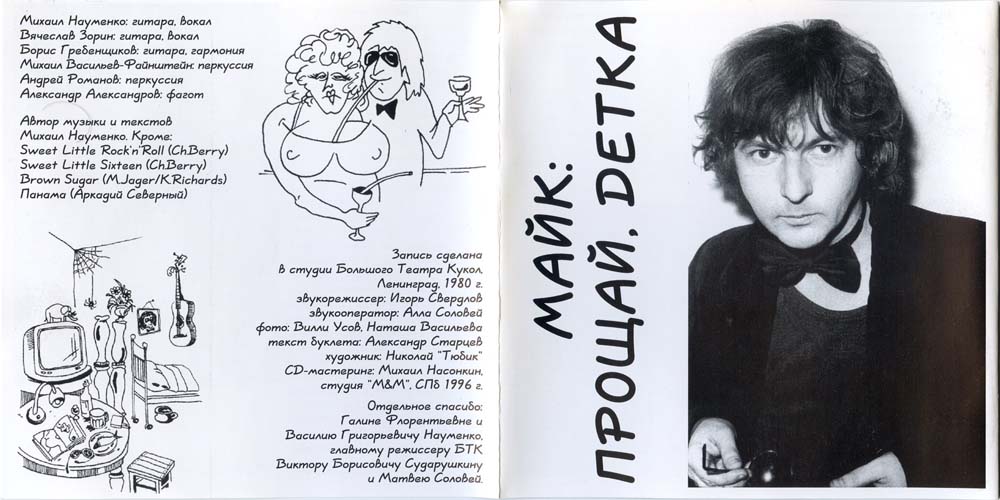 Михаил Науменко: гитара, вокал
Вячеслав Зорин: гитара, вокал
Борис Гребенщиков: гитара, гармония
Михаил Васильев-Файнштейн: перкуссия
Андрей Романов: перкуссия
Александр Александров: фагот
Автор музыки и текстов
Михаил Науменко. Кроме:
Sweet Little Rock'n'Roll (Ch.Berry)
Sweet Little Sixteen (Ch.Berry)
Brown Sugar (M.Jager/K.Richards)
Панама (Аркадий Северный)
Запись сделана
в студии Большого Театра Кукол,
Ленинград, 1980 г.
звукорежиссер: Игорь Свердлов
звукооператор: Алла Соловей
фото: Вилли Усов, Наташа Васильева
текст буклета: Александр Старцев
художник: Николай "Тюбик"
CD-мастеринг: Михаил Насонкин,
студия "М&М", СПб 1996 г.
Отдельное спасибо:
Галине Флорентьевне и
Василию Григорьевичу Науменко,
главному режиссеру БТК
Виктору Борисовичу Сударушкину
и Матвею Соловей.
МАЙК:
ПРОЩАЙ, DЕТКА